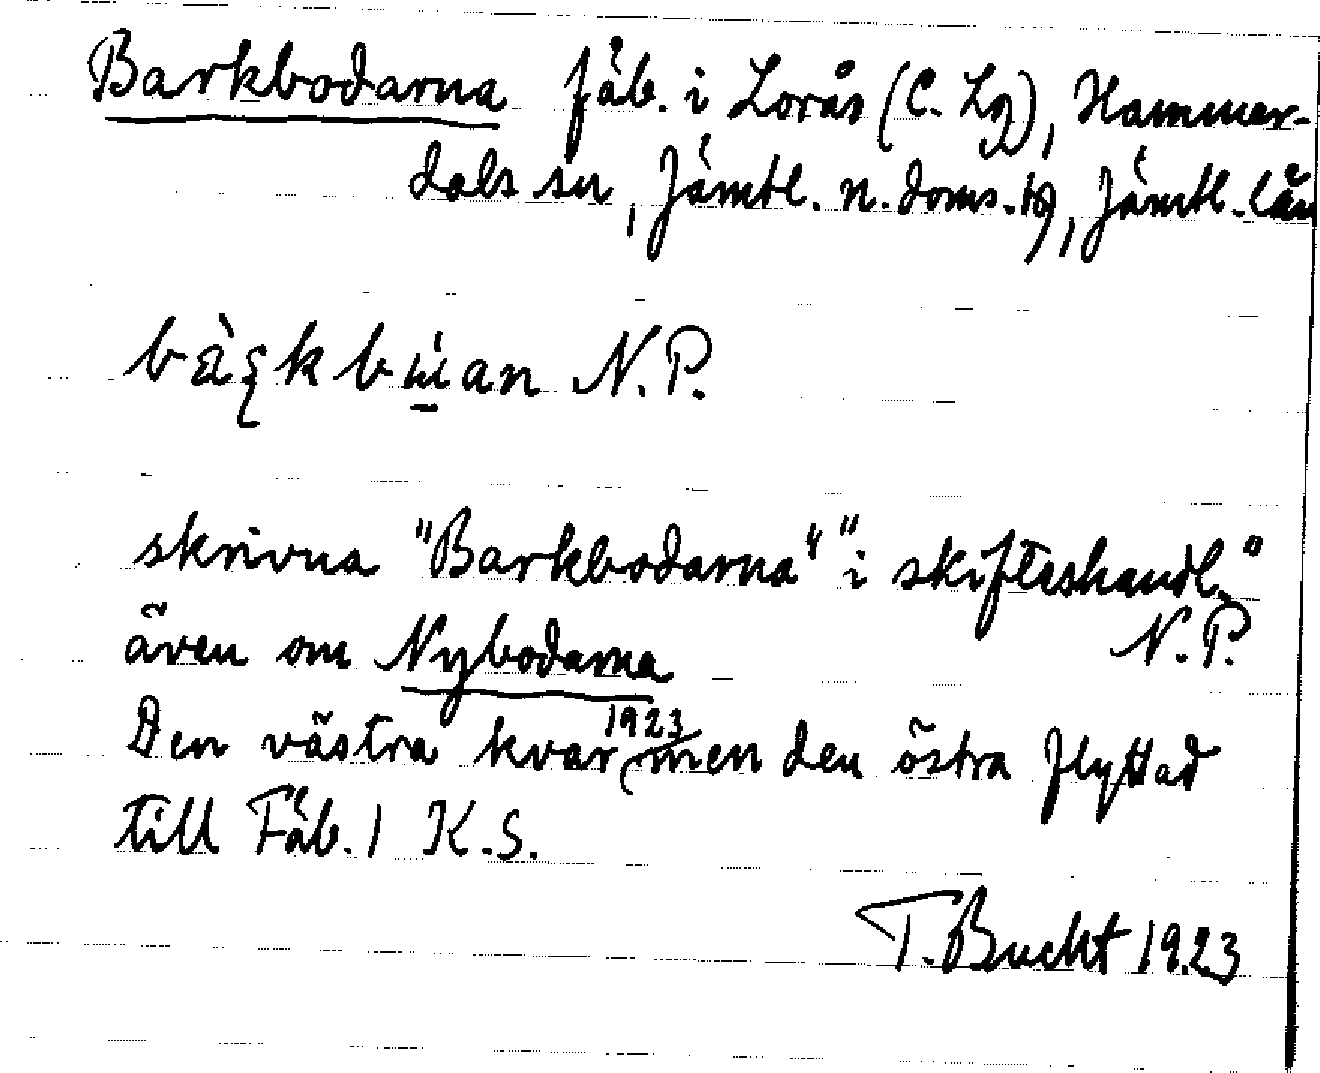 Barkbodarna fäb. i Lorås (C. Lg), Hammer-
dals sn, Jämtl. n. doms.-tg, Jämtl. län
N. P.
skrivna "Barkbodarna" "i skifteshandl."
även om Nybodarna N. P.
Den västra kvar 1923 men den östra flyttad
till Fäb. 1 K. S.
T. Bucht 1923